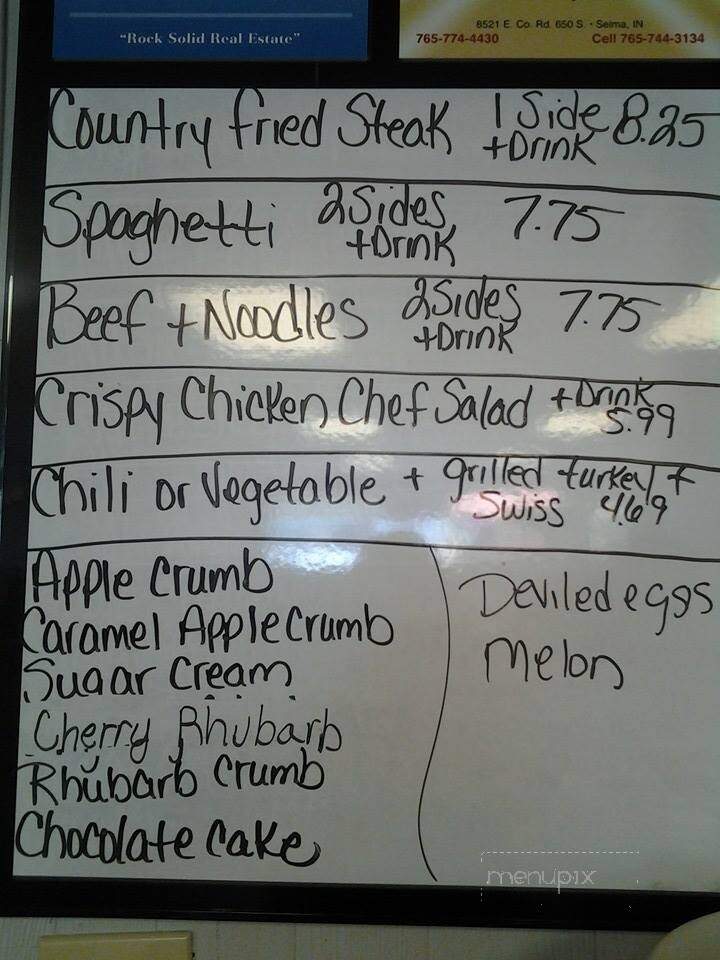 "Rock Solid Real Estate"
8521 E. Co. Rd. 650 S. • Selma, IN
765-774-4430 Cell 765-744-3134
Country fried Steak 1 Side + Drink 8.25
Spaghetti 2 Sides + Drink 7.75
Beef + Noodles 2 Sides + Drink 7.75
Crispy Chicken Chef Salad + Drink 5.99
Chili or Vegetable + grilled turkey + Swiss 4.69
Apple Crumb
Caramel Apple Crumb
Sugar Cream
Cherry Rhubarb
Rhubarb Crumb
Chocolate Cake
Deviled eggs
Melon
menupix